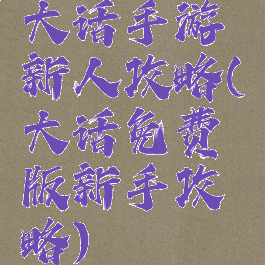 大话手游
新人攻略(
大话免费
版新手攻
略)